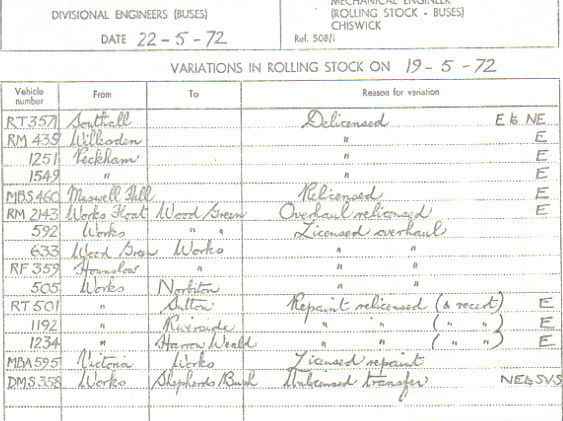 DIVISIONAL ENGINEERS (BUSES)
DATE 22-5-72
MECHANICAL ENGINEER
(ROLLING STOCK - BUSES)
CHISWICK
Ref. 508/
VARIATIONS IN ROLLING STOCK ON 19-5-72
Vehicle number From To Reason for variation
RT 357 Southall Delicensed E to NE
RM 435 Willesden " E
1251 Peckham " E
1549 " " E
MBS 460 Muswell Hill Relicensed E
RM 2143 Works Float Wood Green Overhaul relicensed E
592 Works " " Licensed overhaul
633 Wood Green Works " "
RF 359 Hounslow " " "
505 Works Norbiton " "
RT 501 " Sutton Repaint relicensed (& recert) E
1192 " Riverside " " ( " " ) E
1234 " Harrow Weald " " ( " " ) E
MBA 595 Victoria Works Licensed repaint
DMS 358 Works Shepherds Bush Unlicensed transfer NE to SVS